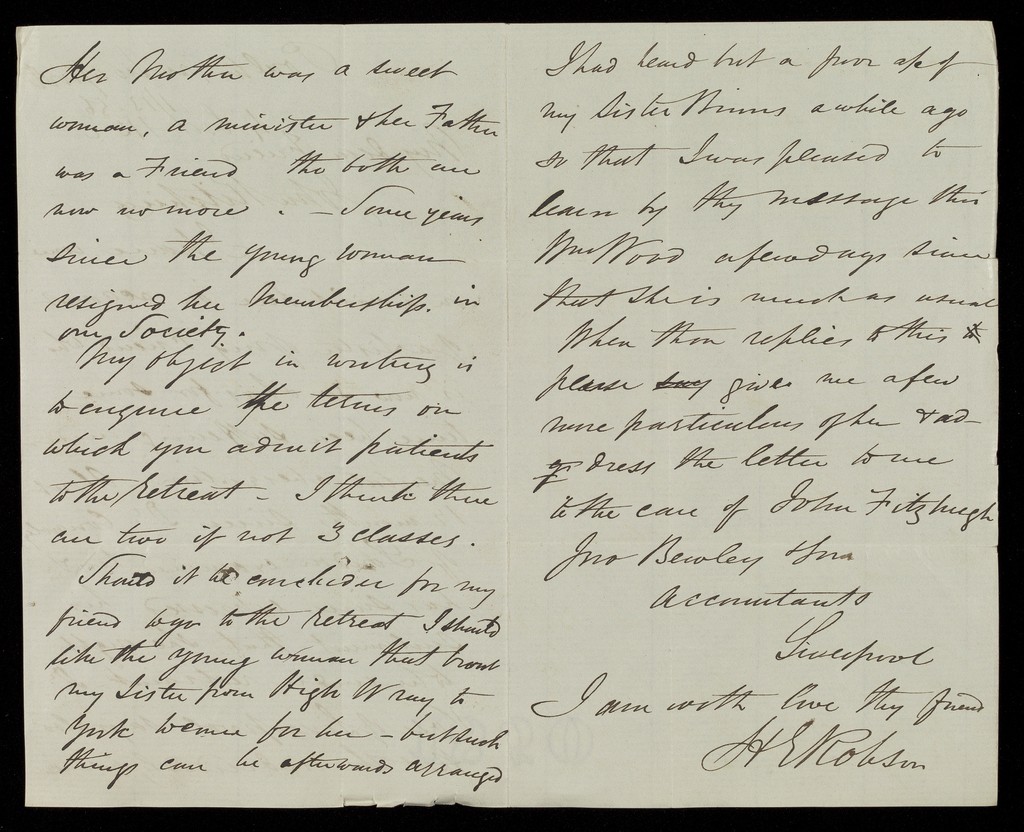 Her Mother was a sweet
woman, a minister & her Father
was a Friend tho both are
now no more. - Some years
since the young woman
resigned her Membership. in
our Society.
My object in writing is
to enquire the terms on
which you admit patients
to the Retreat - I think there
are two if not 3 classes.
Should it be concluded for my
friend to go to the Retreat I should
like the young woman that
my Sister from High Wray to
York to come for her - but such
things can be afterwards arranged
I had heard but a poor a/c of
my Sister Binns a while ago
so that I was pleased to
learn by thy message thro
Wm Wood a few days since
that she is much as usual
When thou replies to this
please say give me a few
more particulars of her & ad-
dress the letter to me
to the care of John Fitzhugh
Jno Bewley & Son
Accountants
Liverpool
I am with love thy friend
H E Robson